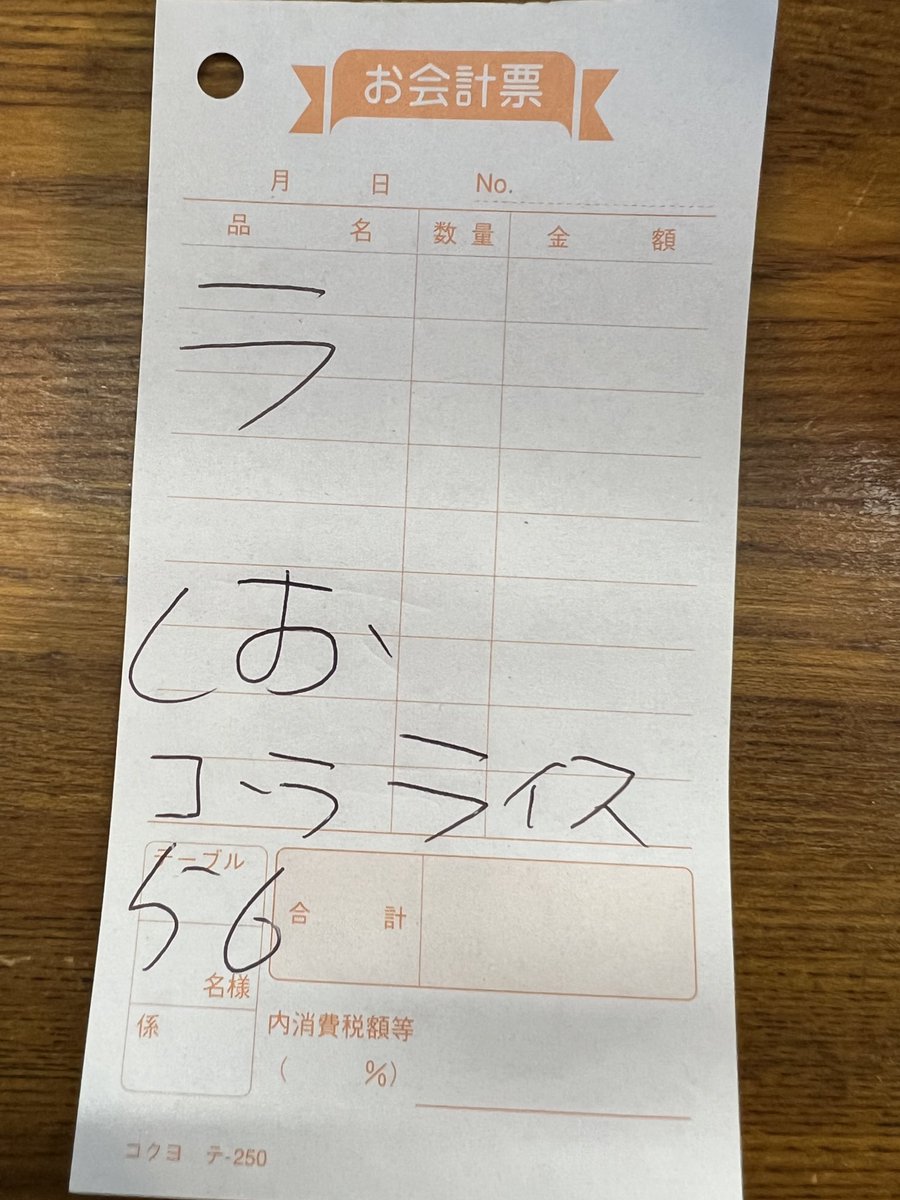 お会計票
月 日 No.
品名 数量 金額
ラ
しお
コーラ ライス
テーブル
56
合計
名様
係
内消費税額等
( %)
コクヨ テ-250